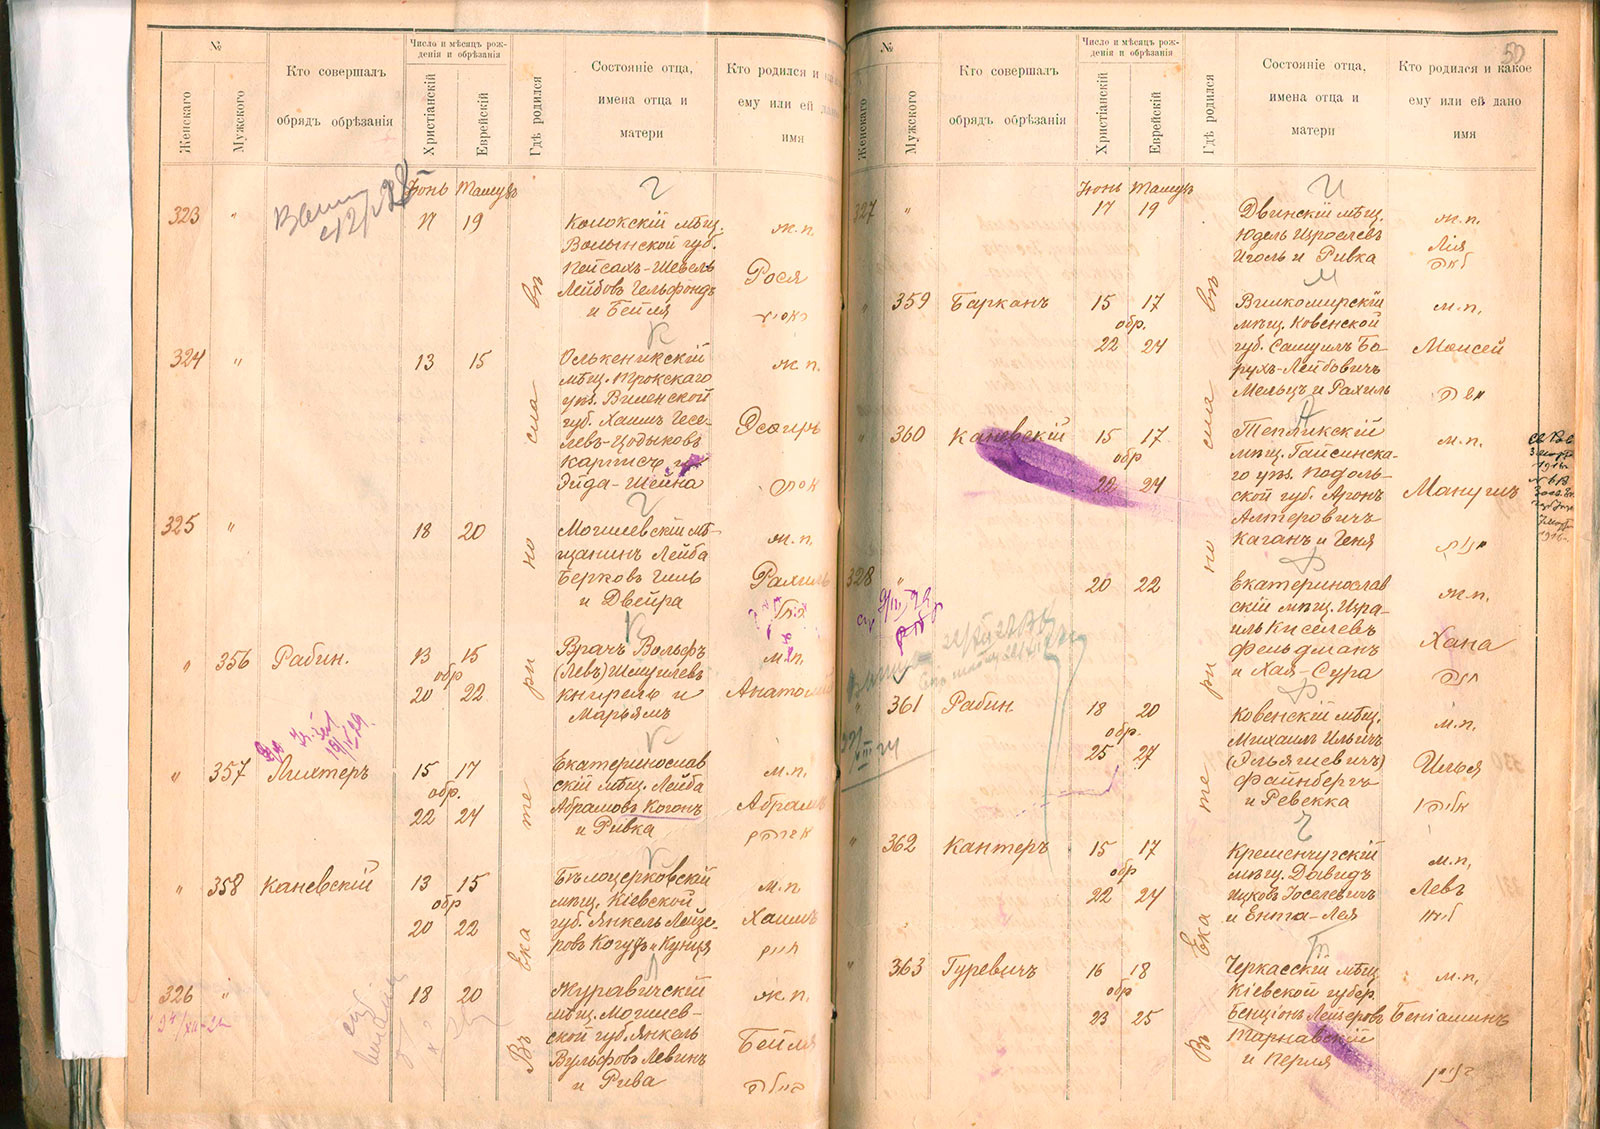 №
Женскаго
Мужского
Кто совершалъ
обрядъ обрѣзанія
Число и мѣсяцъ рож-
денія и обрѣзанія
Христіанскій
Еврейскій
Гдѣ родился
Состояніе отца,
имена отца и
матери
Кто родился и
ему или ей дано
имя
Въ Екатеринославѣ
Іюнь Тамузъ
323 "
17 19
Колокскій мѣщ.
Волынской губ.
Пейсахъ-Шевель
Лейбовъ Гельфондъ
и Бейля
ж. п.
Рося
324 "
13 15
Олькеникскій
мѣщ. Трокскаго
уѣз. Виленской
губ. Хаимъ Гесе-
левъ-Цодыковъ
Эйда-Шейна
ж. п.
Эсѳирь
אסתר
325 "
18 20
Могилевскій мѣ-
щанинъ Лейба
Берковъ Гиль
и Двейра
ж. п.
Рахиль
רחל
" 356 Рабин.
13 15
обр
20 22
Врачъ Вольфъ
(Левъ) Шмуилевъ
Книрель и
Марьямъ
м. п.
Анатолій
" 357 Лихтеръ
15 17
обр.
22 24
Екатеринослав
скій мѣщ. Лейба
Абрамовъ Когонъ
и Ривка
м. п.
Абрамъ
אברהם
" 358 Каневскій
13 15
обр
20 22
Бѣлоцерковскій
мѣщ. Кіевской
губ. Янкель Лейзе-
ровъ Когудъ и Кунця
м. п
Хаимъ
חיים
326 "
18 20
Журавичскій
мѣщ. Могилев-
ской губ. Янкель
Вульфовъ Левинъ
и Рива
ж. п.
Бейля
ביילה
50
№
Женскаго
Мужского
Кто совершалъ
обрядъ обрѣзанія
Число и мѣсяцъ рож-
денія и обрѣзанія
Христіанскій
Еврейскій
Гдѣ родился
Состояніе отца,
имена отца и
матери
Кто родился и какое
ему или ей дано
имя
Въ Екатеринославѣ
Іюнь Тамузъ
327 "
17 19
Двинскій мѣщ.
Юдель Изроелевъ
Иголь и Ривка
ж. п.
Лія
לאה
" 359 Барканъ
15 17
обр.
22 24
Вилкомирскій
мѣщ. Ковенской
губ. Самуилъ Бо-
рухъ-Лейбовичъ
Мельцъ и Рахиль
м. п.
Моисей
משה
" 360 Каневскій
15 17
обр
22 24
Тепликскій
мѣщ. Гайсинска-
го уѣз. Подоль-
ской губ. Аронъ
Алтеровичъ
Каганъ и Геня
м. п.
Манусъ
328 "
20 22
Екатеринослав
скій мѣщ. Изра-
иль Киселевъ
Фельдманъ
и Хая-Сура
ж. п.
Хана
חנה
" 361 Рабин.
18 20
обр.
25 27
Ковенскій мѣщ.
Михаилъ Ильичъ
(Эльяшевичъ)
Файнбергъ
и Ревекка
м. п.
Илья
אליהו
" 362 Кантеръ
15 17
обр
22 24
Кременчугскій
мѣщ. Давидъ
Ицковъ Іоселевичъ
и Ента-Лея
м. п.
Левъ
ליב
" 363 Гуревичъ
16 18
обр
23 25
Черкасскій мѣщ.
Кіевской губер.
Бенціонъ Лейзеровъ
Тарнавскій
и Перля
м. п.
Беніаминъ
בנימין